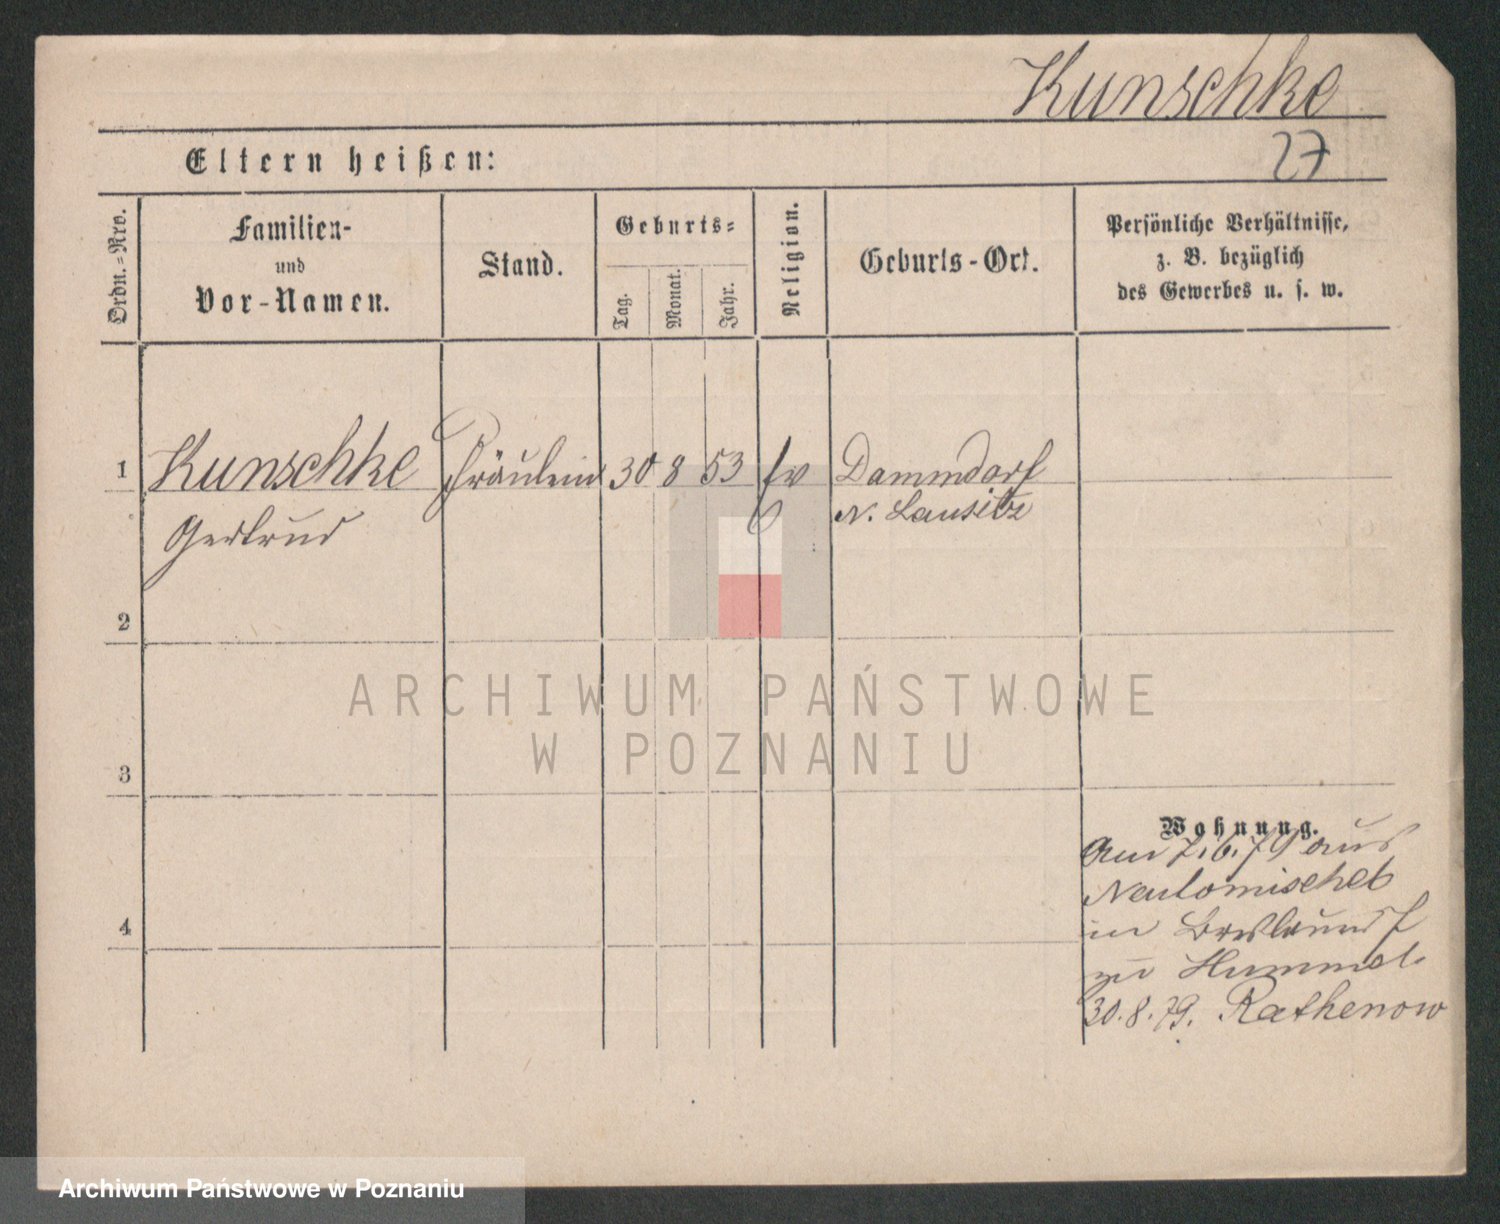 Kunschke
27
Eltern heißen:
Ordn.=Nro.
Familien-
und
Vor-Namen.
Stand.
Geburts=
Tag.
Monat.
Jahr.
Religion.
Geburts-Ort.
Persönliche Verhältnisse,
z. B. bezüglich
des Gewerbes u. s. w.
1 Kunschke Fräulein 30 8 53 ev Dammdorf
Gertrud N. Lausitz
2
ARCHIWUM PAŃSTWOWE
W POZNANIU
3
Wohnung.
Am 7.6.79 aus
Neutomischel
in
4
zu Hummel
30.8.79. Rathenow
Archiwum Państwowe w Poznaniu